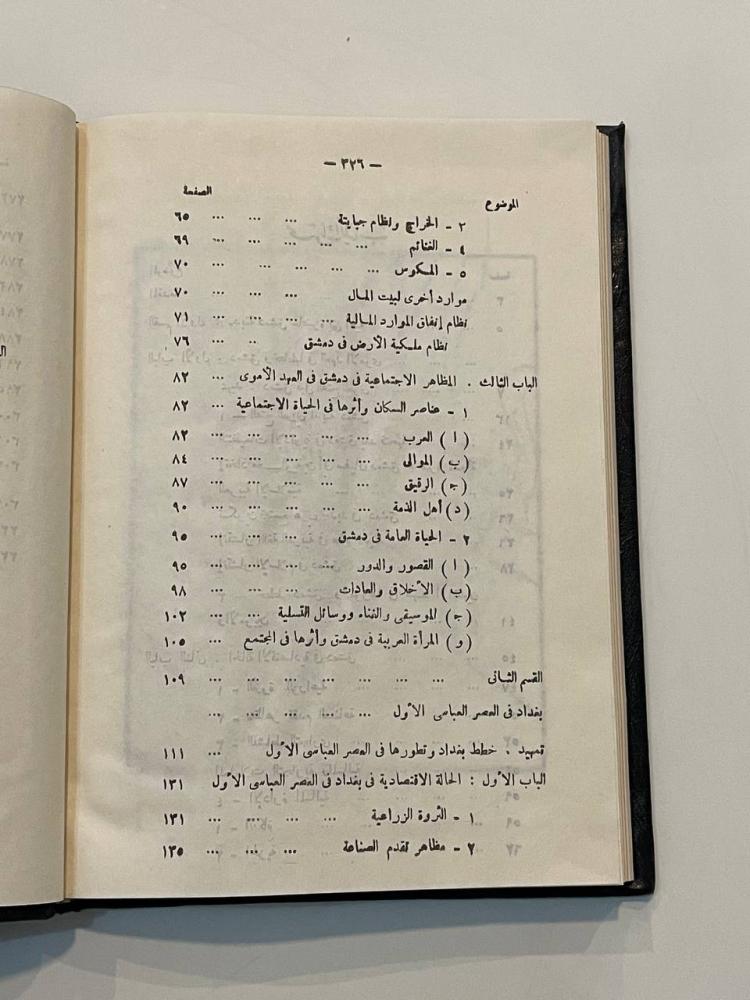 — ٣٢٦ —
الموضوع الصفحة
٢ - الخراج ونظام جبايتة ... ... ... ٦٥
٤ - الغنائم ... ... ... ... ... ٦٩
٥ - المكوس ... ... ... ... ... ٧٠
موارد أخرى لبيت المال ... ... ... ٧٠
نظام إنفاق الموارد المالية ... ... ... ... ٧١
نظام ملكية الأرض فى دمشق .. ... ٧٦
الباب الثالث . المظاهر الاجتماعية فى دمشق فى العهد الأموى ... ٨٢
١ - عناصر السكان وأثرها فى الحياة الاجتماعية ... ٨٢
( ا ) العرب ... ... ... ... ... ٨٢
(ب) الموالى ... ... ... ... ... ٨٤
(ج) الرقيق ... ... ... ... ... ٨٧
(د) أهل الذمة ... ... ... ... ... ٩٠
٢ - الحياة العامة فى دمشق ... ... ... ... ٩٥
( ا ) القصور والدور ... ... ... ... ٩٥
(ب) الأخلاق والعادات ... ... ... ... ٩٨
(ج) الموسيقى والغناء ووسائل التسلية ... ... ١٠٢
(و) المرأة العربية فى دمشق وأثرها فى المجتمع ... ١٠٥
القسم الثانى ... ... ... ... ... ... ١٠٩
بغداد فى العصر العباسى الأول ... ... ... ... ...
تمهيد . خطط بغداد وتطورها فى العصر العباسى الأول ... ١١١
الباب الأول : الحالة الاقتصادية فى بغداد فى العصر العباسى الأول ١٣١
١ - الثروة الزراعية ... ... ... ... ... ١٣١
٢ - مظاهر تقدم الصناعة ... ... ... ١٣٥